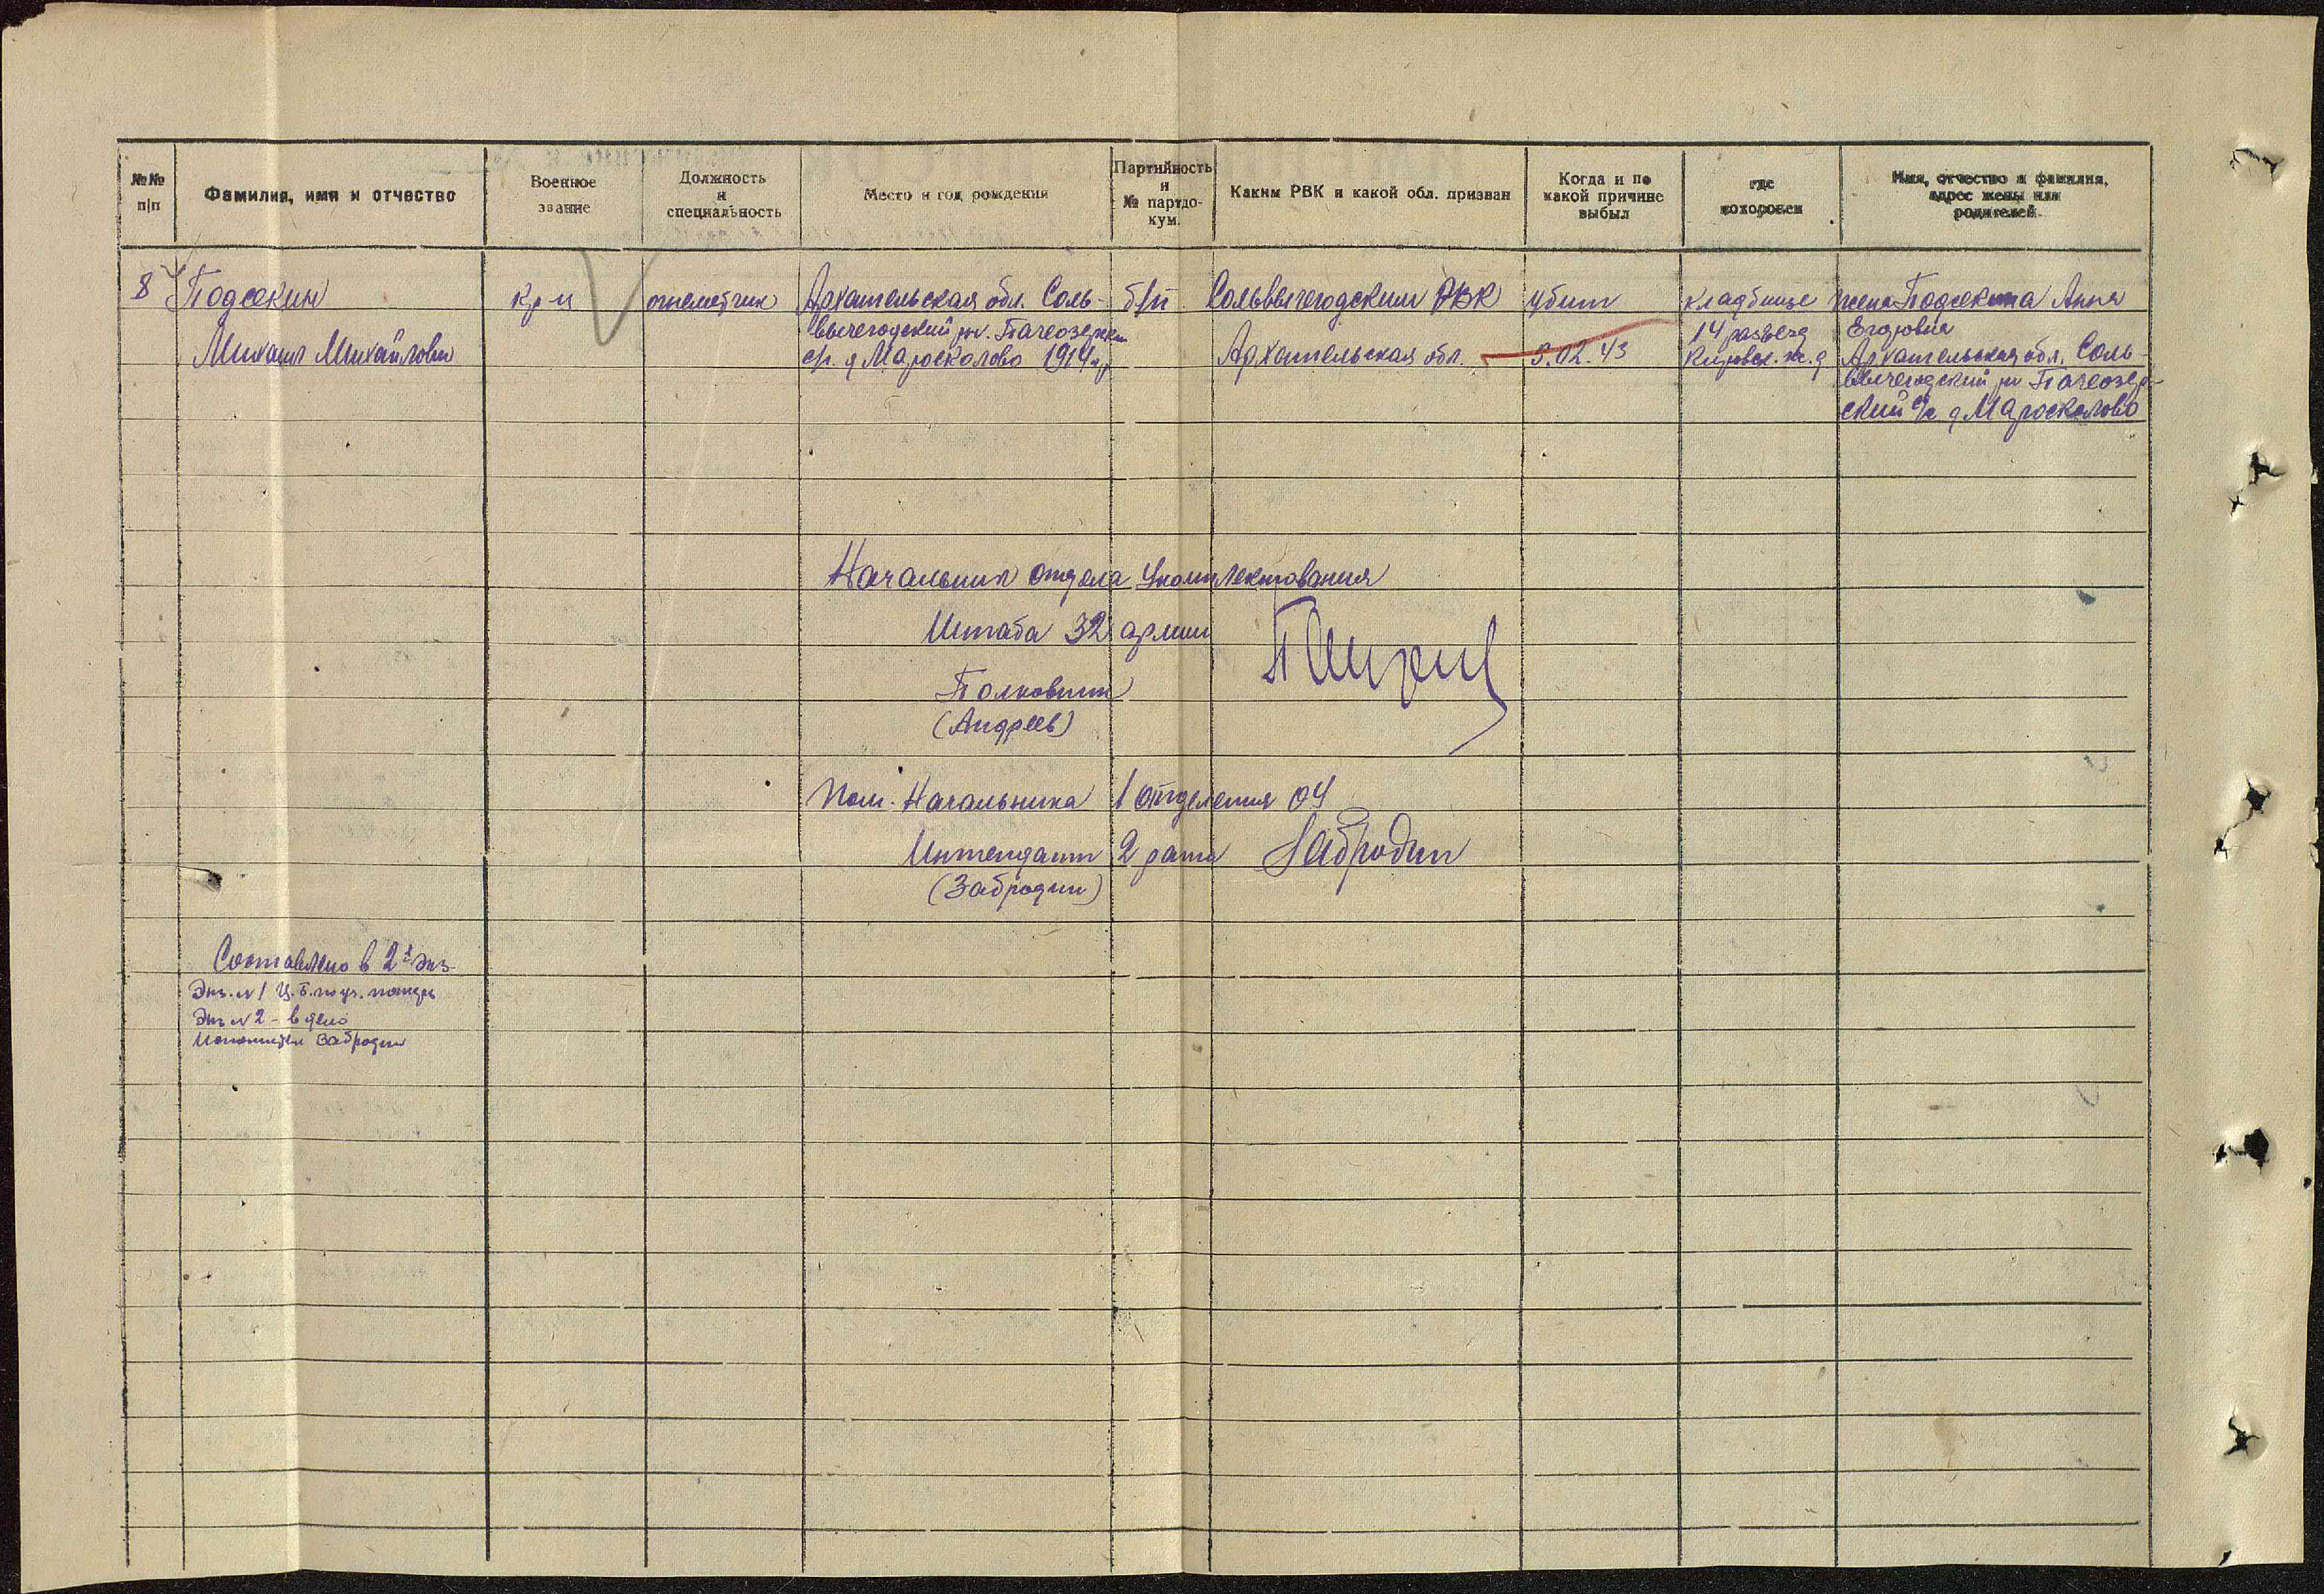 №№ п/п
Фамилия, имя и отчество
Военное звание
Должность и специальность
Место и год рождения
Партийность и № партдо-кум.
Каким РВК и какой обл. призван
Когда и по какой причине выбыл
где похоронен
Имя, отчество и фамилия, адрес жены или родителей.
8
Подсекин
Михаил Михайлович
кр-ц
огнеметчик
Архангельская обл. Соль-
вычегодский р-н. Пачеозерск
с/с. д Мароскалово 1914 г.р
б/п
Сольвычегодским РВК
Архангельская обл.
убит
3.02.43
кладбище
14 разъезд
Кировск. ж. д
жена Подсекина Анна
Егоровна
Архангельская обл. Соль-
вычегодский р-н Пачеозер-
ский с/с д Мароскалово
Начальник отдела Укомплектования
Штаба 32 армии
Полковник
(Андреев)
Пом. Начальника 1 отделения ОУ
Интендант 2 ранга Забродин
(Забродин)
Составлено в 2х экз.
Экз. № 1 Ц. Б. по уч. потерь
Экз № 2 - в дело
Исполнител Забродин